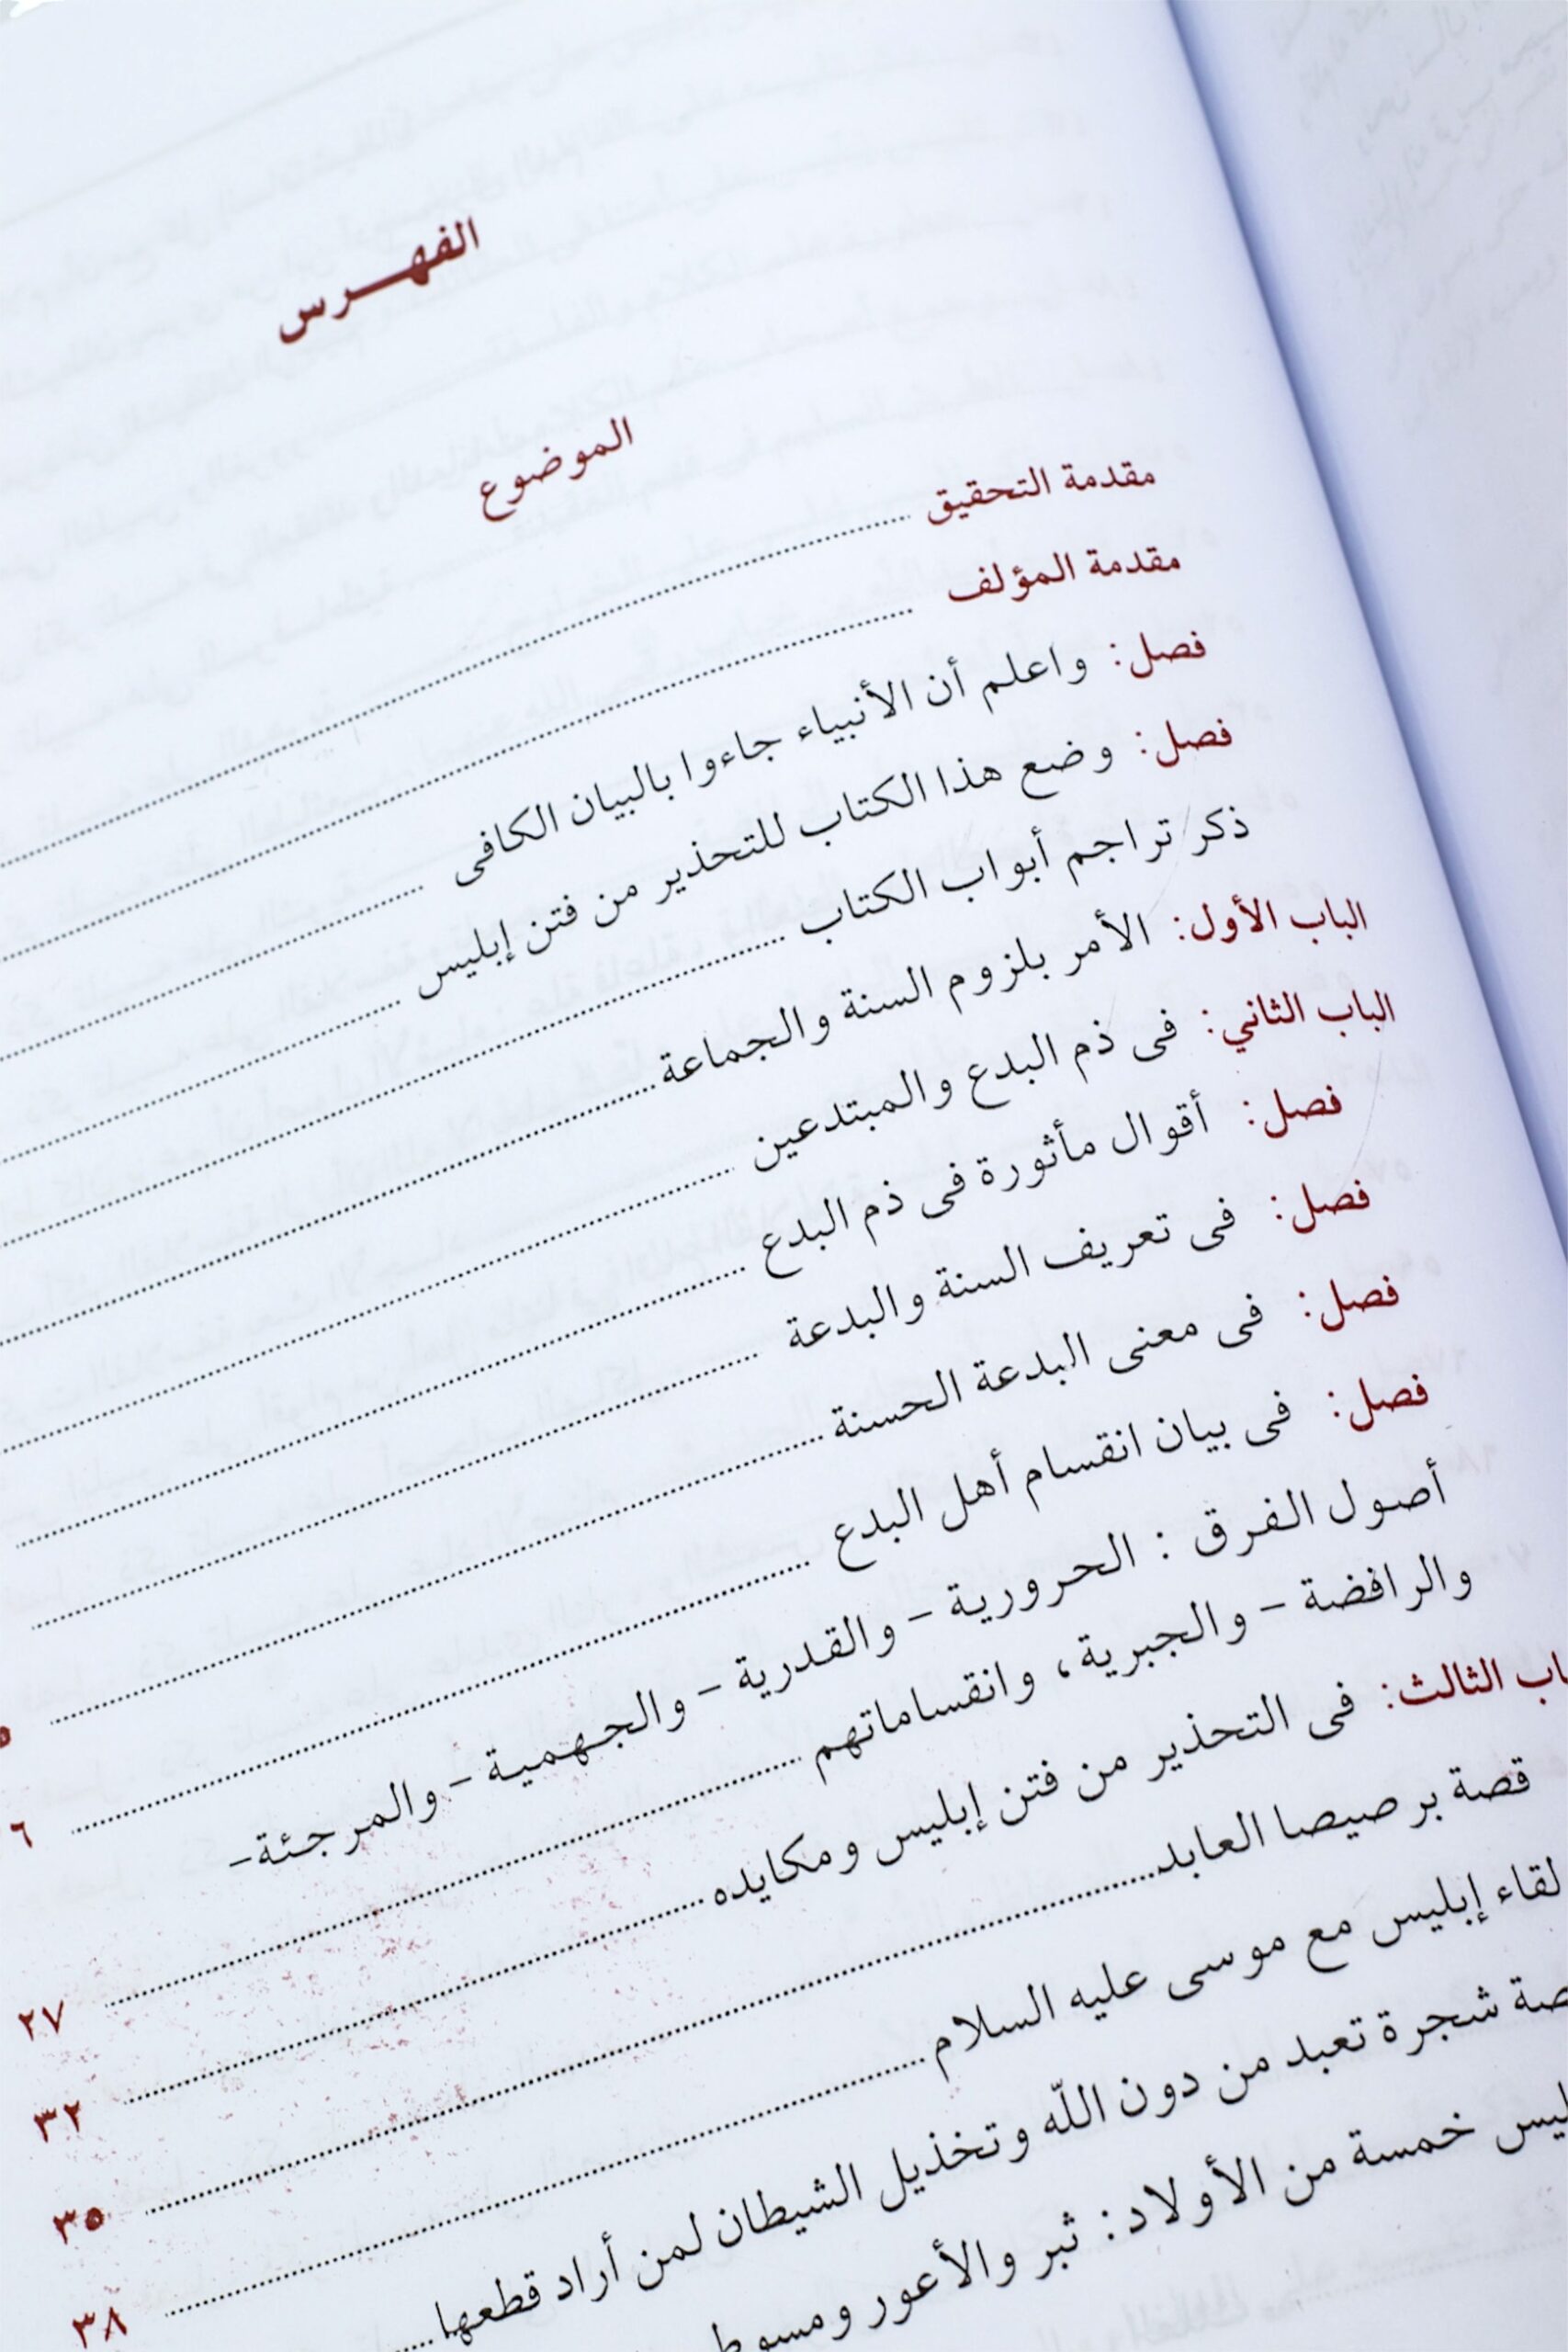 الفهــرس
الموضوع
مقدمة التحقيق
مقدمة المؤلف
فصل: واعلم أن الأنبياء جاءوا بالبيان الكافى
فصل: وضع هذا الكتاب للتحذير من فتن إبليس
ذكر تراجم أبواب الكتاب
الباب الأول: الأمر بلزوم السنة والجماعة
الباب الثاني: فى ذم البدع والمبتدعين
فصل: أقوال مأثورة فى ذم البدع
فصل: فى تعريف السنة والبدعة
فصل: فى معنى البدعة الحسنة
فصل: فى بيان انقسام أهل البدع
أصول الفرق : الحرورية - والقدرية - والجهمية - والمرجئة-
والرافضة - والجبرية، وانقساماتهم ٢٧
الثالث: فى التحذير من فتن إبليس ومكايده ٣٢
قصة برصيصا العابد ٣٥
لقاء إبليس مع موسى عليه السلام ٣٨
شجرة تعبد من دون اللّه وتخذيل الشيطان لمن أراد قطعها
خمسة من الأولاد: ثبر والأعور ومسوط